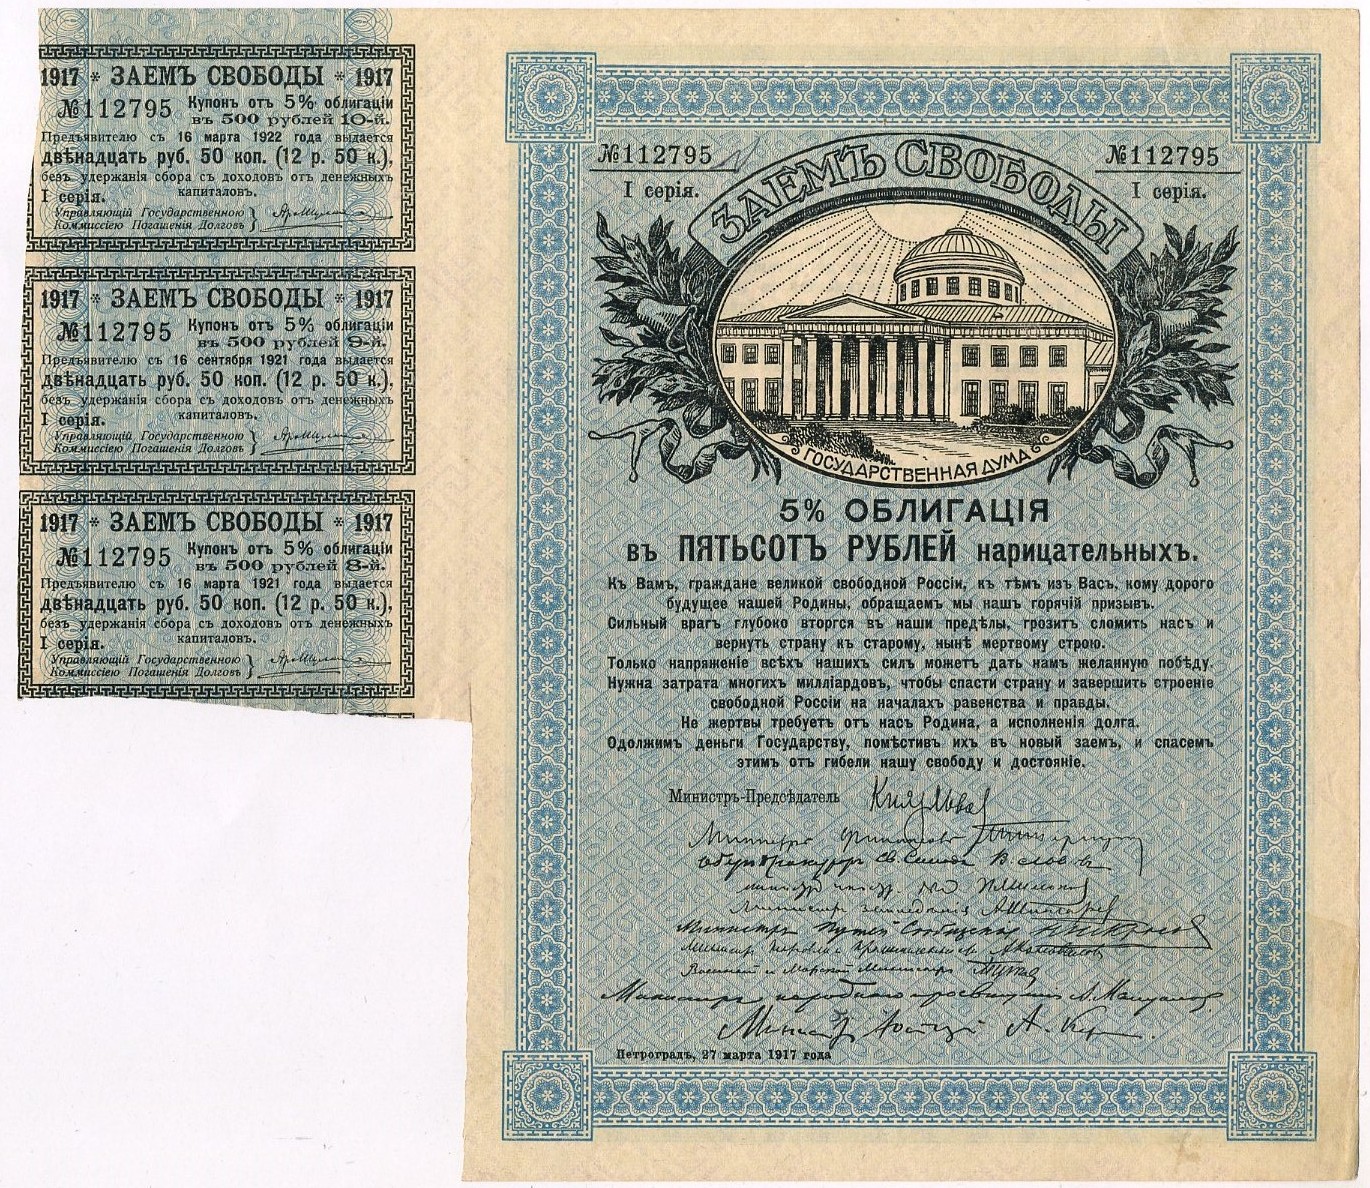 1917 * ЗАЕМЪ СВОБОДЫ * 1917
№112795 Купонъ отъ 5% облигаціи
въ 500 рублей 10-й.
Предъявителю съ 16 марта 1922 года выдается
двѣнадцать руб. 50 коп. (12 р. 50 к.),
безъ удержанія сбора съ доходовъ отъ денежныхъ
капиталовъ.
I серія.
Управляющій Государственною
Коммиссіею Погашенія Долговъ
1917 * ЗАЕМЪ СВОБОДЫ * 1917
№112795 Купонъ отъ 5% облигаціи
въ 500 рублей 9-й.
Предъявителю съ 16 сентября 1921 года выдается
двѣнадцать руб. 50 коп. (12 р. 50 к.),
безъ удержанія сбора съ доходовъ отъ денежныхъ
капиталовъ.
I серія.
Управляющій Государственною
Коммиссіею Погашенія Долговъ
1917 * ЗАЕМЪ СВОБОДЫ * 1917
№112795 Купонъ отъ 5% облигаціи
въ 500 рублей 8-й.
Предъявителю съ 16 марта 1921 года выдается
двѣнадцать руб. 50 коп. (12 р. 50 к.),
безъ удержанія сбора съ доходовъ отъ денежныхъ
капиталовъ.
I серія.
Управляющій Государственною
Коммиссіею Погашенія Долговъ
№112795
I серія.
ЗАЕМЪ СВОБОДЫ
№112795
I серія.
ГОСУДАРСТВЕННАЯ ДУМА
5% ОБЛИГАЦІЯ
въ ПЯТЬСОТЪ РУБЛЕЙ нарицательныхъ.
Къ Вамъ, граждане великой свободной Россіи, къ тѣмъ изъ Васъ, кому дорого
будущее нашей Родины, обращаемъ мы нашъ горячій призывъ.
Сильный врагъ глубоко вторгся въ наши предѣлы, грозитъ сломить насъ и
вернуть страну къ старому, нынѣ мертвому строю.
Только напряженіе всѣхъ нашихъ силъ можетъ дать намъ желанную побѣду.
Нужна затрата многихъ милліардовъ, чтобы спасти страну и завершить строеніе
свободной Россіи на началахъ равенства и правды.
Не жертвы требуетъ отъ насъ Родина, а исполненія долга.
Одолжимъ деньги Государству, помѣстивъ ихъ въ новый заемъ, и спасемъ
этимъ отъ гибели нашу свободу и достояніе.
Министръ-Предсѣдатель Князь Львов
Министръ финансовъ
Оберъ Прокуроръ Св. Синода В. Львовъ
П. Милюков
А. Шингарев
Министръ Путей Сообщенія
Военный и Морской Министръ
Министръ народнаго просвещенія А. Мануилов
Министр Юстиціи А. Кер
Петроградъ, 27 марта 1917 года